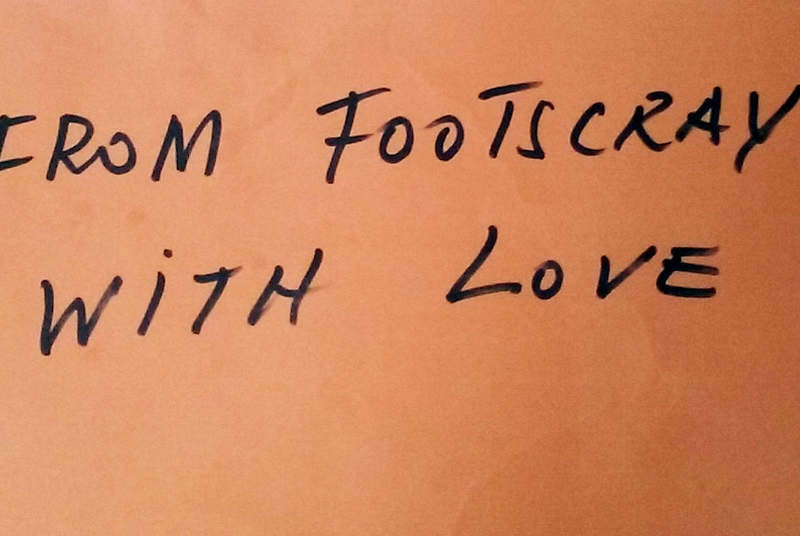 FROM FOOTSCRAY
WiTH LOVE